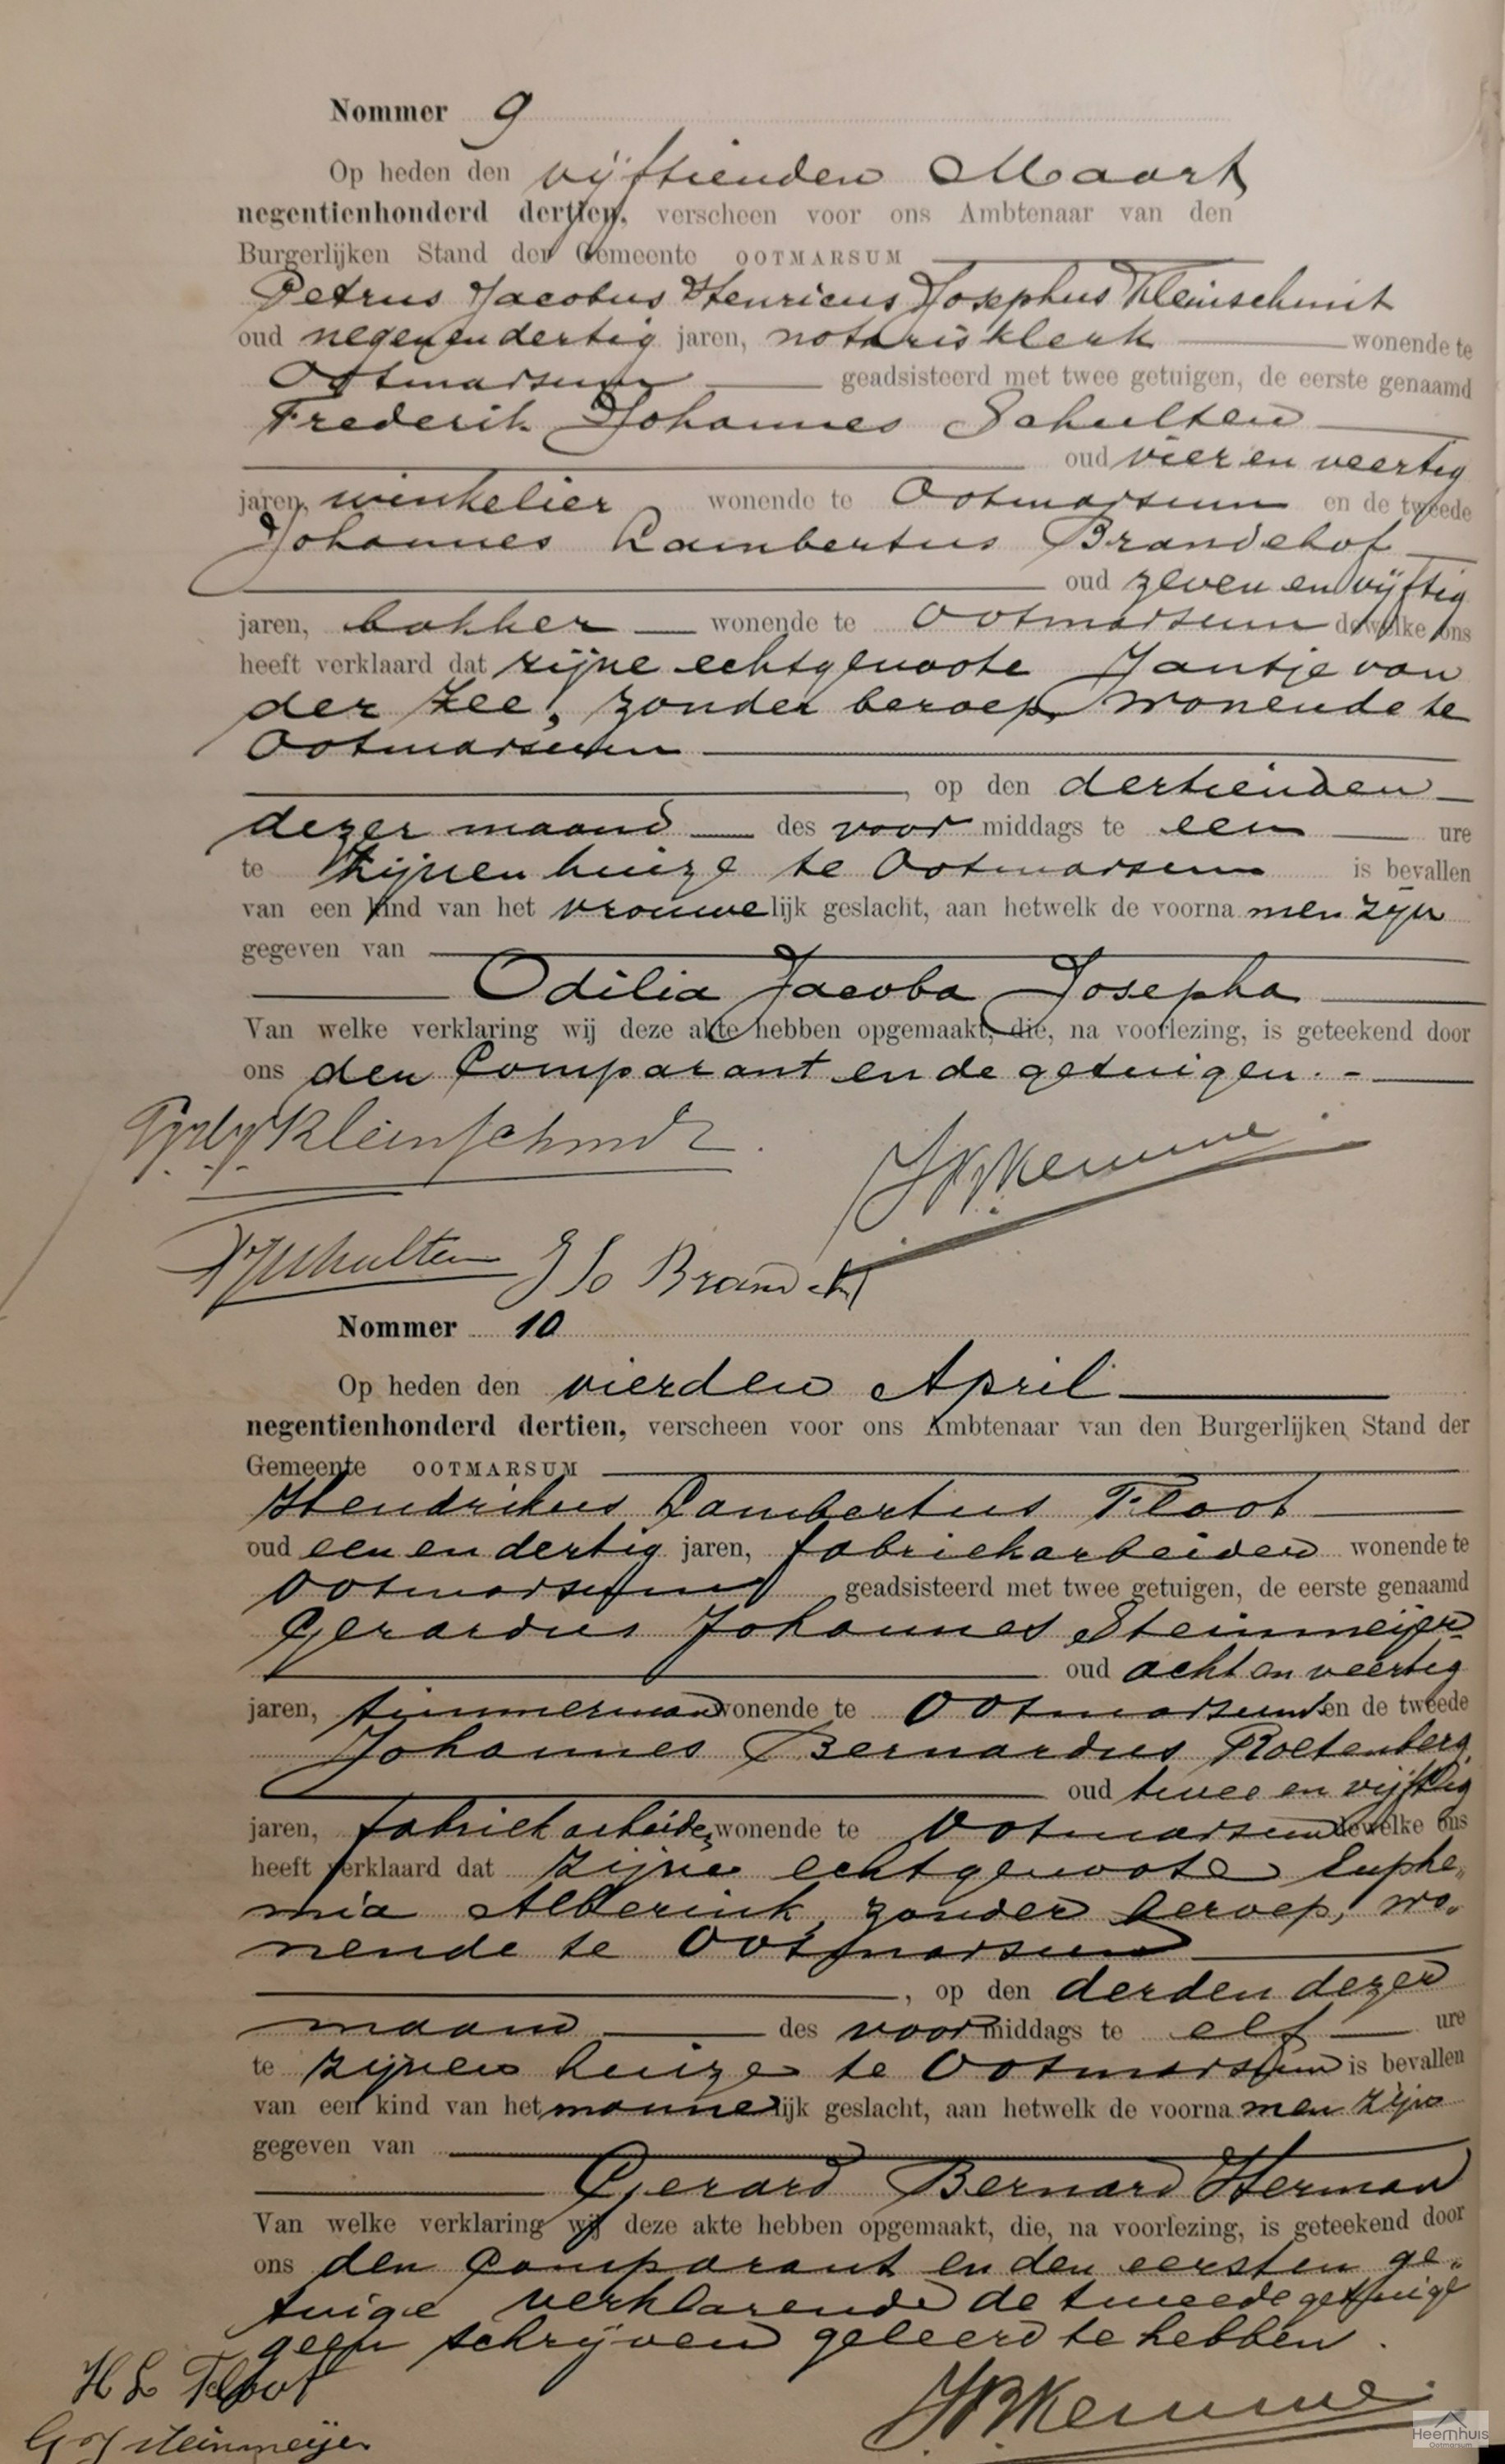 Nommer 9
Op heden den vijftienden Maart
negentienhonderd dertien, verscheen voor ons Ambtenaar van den
Burgerlijken Stand der Gemeente OOTMARSUM
Petrus Jacobus Henricus Josephus Kleinschmit
oud negen en dertig jaren, notarisklerk wonende te
Ootmarsum geadsisteerd met twee getuigen, de eerste genaamd
Frederik Johannes Schulten
oud vier en veertig
jaren, winkelier wonende te Ootmarsum en de tweede
Johannes Lambertus Brandehof
oud zeven en vijftig
jaren, bakker wonende te Ootmarsum dewelke ons
heeft verklaard dat zijne echtgenoote Jantje van
der Zee, zonder beroep, wonende te
Ootmarsum
, op den dertienden
dezer maand des voor middags te een ure
te zijnen huize te Ootmarsum is bevallen
van een kind van het vrouwelijk geslacht, aan hetwelk de voorna men zijn
gegeven van
Odilia Jacoba Josepha
Van welke verklaring wij deze akte hebben opgemaakt, die, na voorlezing, is geteekend door
ons den Comparant en de getuigen. -
Kleinschmit
JBKemme
FJSchulten J L Brandehof
Nommer 10
Op heden den vierden April
negentienhonderd dertien, verscheen voor ons Ambtenaar van den Burgerlijken Stand der
Gemeente OOTMARSUM
Hendrikus Lambertus Floot
oud een en dertig jaren, fabriekarbeider wonende te
Ootmarsum geadsisteerd met twee getuigen, de eerste genaamd
Gerardus Johannes Steinmeijer
oud acht en veertig
jaren, timmerman wonende te Ootmarsum en de tweede
Johannes Bernardus Roetenberg
oud twee en vijftig
jaren, fabriekarbeider, wonende te Ootmarsum dewelke ons
heeft verklaard dat zijne echtgenoote Euphe„
mia Alberink, zonder beroep, wo„
nende te Ootmarsum
, op den derden dezer
maand des voor middags te elf ure
te zijnen huize te Ootmarsum is bevallen
van een kind van het mannelijk geslacht, aan hetwelk de voorna men zijn
gegeven van
Gerard Bernard Herman
Van welke verklaring wij deze akte hebben opgemaakt, die, na voorlezing, is geteekend door
ons den Comparant en den eersten ge„
tuige verklarende de tweede getuige
geen schrijven geleerd te hebben.
H L Floot
JBKemme
G J Steinmeijer
Heemhuis
Ootmarsum